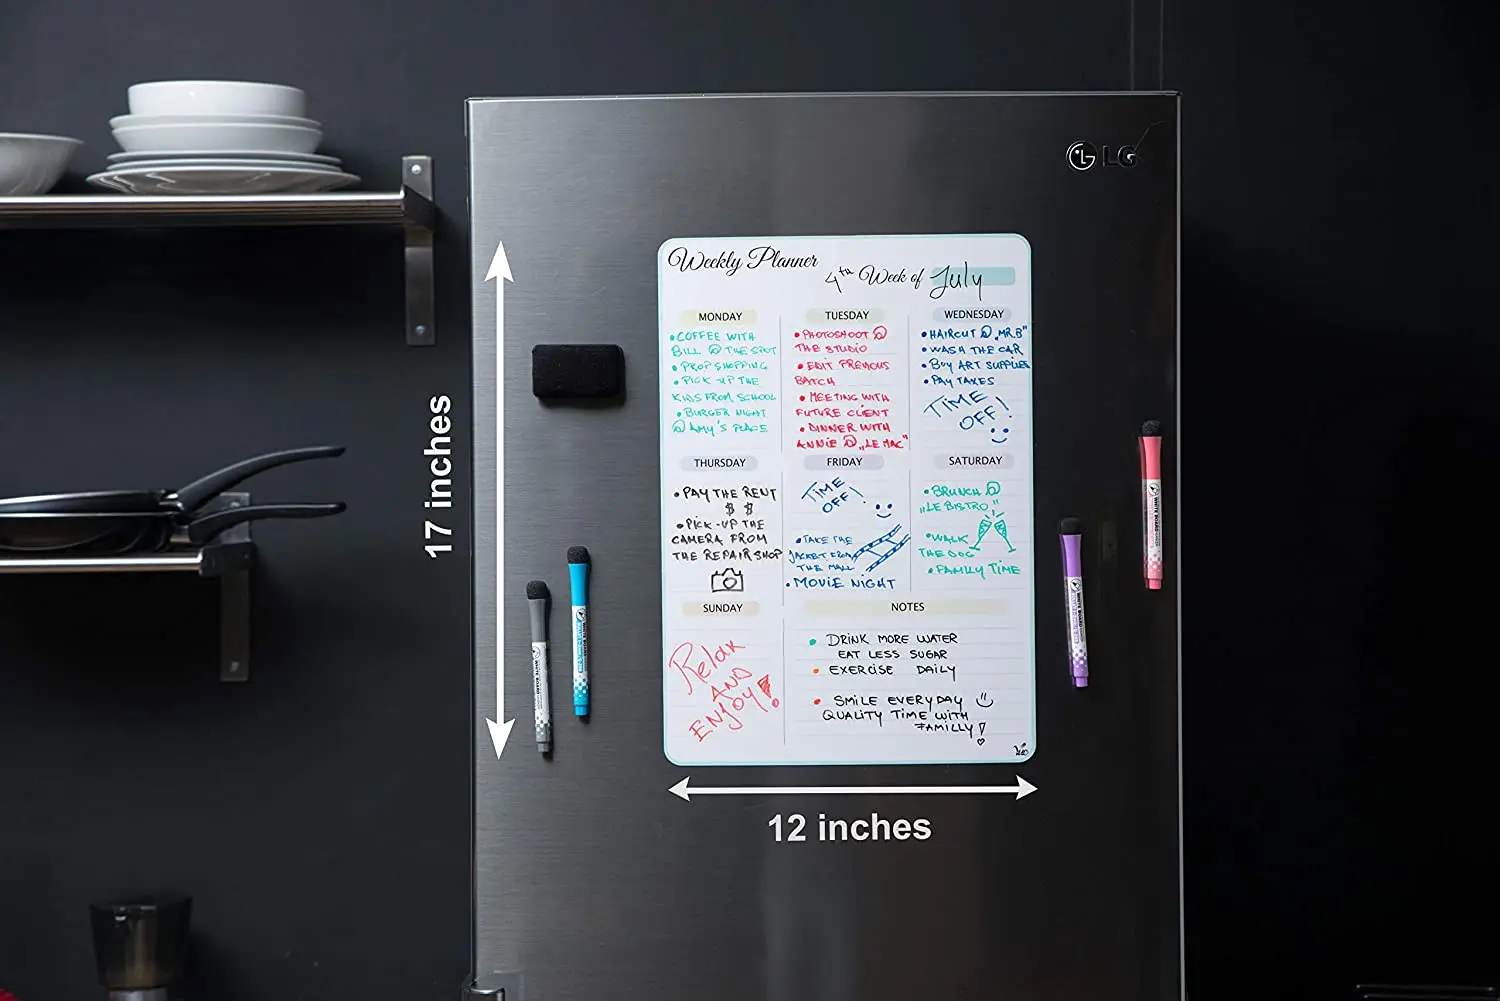 LG
Weekly Planner
4th Week of July
MONDAY
• COFFEE WITH
BILL @ THE SPOT
• PROP SHOPPING
• PICK UP THE
KIDS FROM SCHOOL
• BURGER NIGHT
@ AMY'S PLACE
TUESDAY
• PHOTOSHOOT @
THE STUDIO
• EDIT PREVIOUS
BATCH
• MEETING WITH
FUTURE CLIENT
• DINNER WITH
ANNIE @ „LE MAC"
WEDNESDAY
• HAIRCUT @ „MR.B"
• WASH THE CAR
• BUY ART SUPPLIES
• PAY TAXES
TIME
OFF!
THURSDAY
• PAY THE RENT
$ $
• PICK-UP THE
CAMERA FROM
THE REPAIR SHOP
FRIDAY
TIME
OFF!
• TAKE THE
JACKET FROM
THE MALL
• MOVIE NIGHT
SATURDAY
• BRUNCH @
„LE BISTRO"
• WALK
THE DOG
• FAMILY TIME
SUNDAY
Relax
AND
ENJOY!
NOTES
• DRINK MORE WATER
EAT LESS SUGAR
• EXERCISE DAILY
• SMILE EVERYDAY
QUALITY TIME WITH
FAMILLY!
17 inches
12 inches
WHITE BOARD
WHITE BOARD
WHITE BOARD
WHITE BOARD